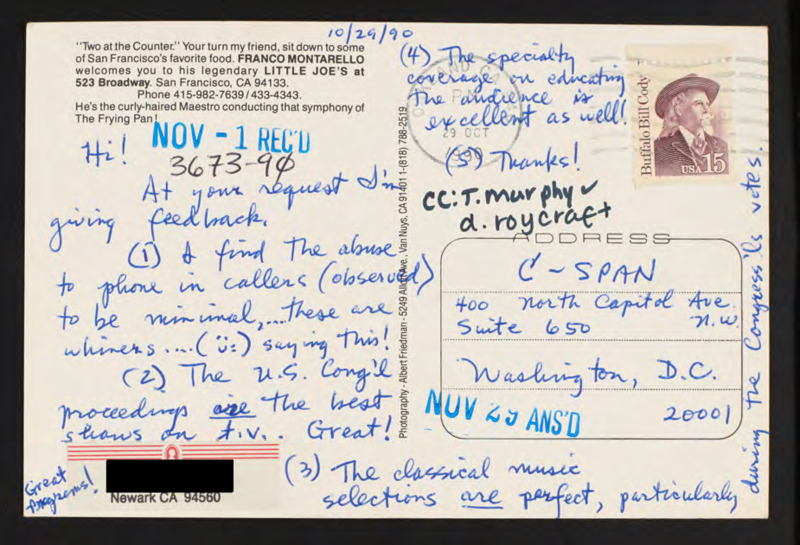 10/29/90
"Two at the Counter." Your turn my friend, sit down to some
of San Francisco's favorite food. FRANCO MONTARELLO
welcomes you to his legendary LITTLE JOE'S at
523 Broadway. San Francisco, CA 94133.
Phone 415-982-7639/433-4343.
He's the curly-haired Maestro conducting that symphony of
The Frying Pan!
NOV - 1 REC'D
3673-90
Hi!
At your request I'm
giving feedback.
(1) I find the abuse
to phone in callers (observed)
to be minimal,...these are
whiners....( ) saying this!
(2) The U.S. Cong'l
proceedings are the best
shows on t.v.. Great!
Great
Programs!
Newark CA 94560
(3) The classical music
selections are perfect, particularly
during the Congress'ls votes.
(4) The specialty
coverage on educating
the audience is
excellent as well!
(5) Thanks!
CC: T. murphy ✓
d. roycraft
Photography - Albert Friedman - 5249 Ave., Van Nuys, CA 91401 1-(818) 788-2519
OAKLAND, CA
PM
29 OCT
1990
Buffalo Bill Cody
USA 15
ADDRESS
C-SPAN
400 North Capitol Ave.
N.W.
Suite 650
Washington, D.C.
20001
NOV 29 ANS'D